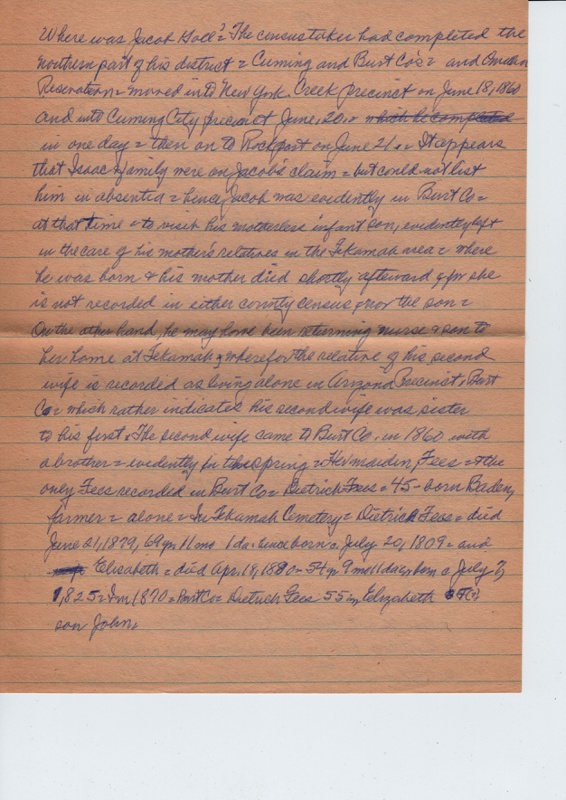 Where was Jacob Goll? The census taker had completed the
northern part of his district = Cuming and Burt Co's = and Omaha
Reservation = moved into New York Creek precinct on June 18, 1860
and into Cuming City precinct June, 20, = which he completed
in one day = then on to Rockport on June 21 = It appears
that Isaac & family were on Jacob's claim = but could not list
him in absentia = hence Jacob was evidently in Burt Co =
at that time = to visit his motherless infant son, evidently left
in the care of his mother's relatives in the Tekamah area = where
he was born & his mother died shortly afterward, for she
is not recorded in either county census, nor the son =
On the other hand, he may have been returning nurse & son to
her home at Tekamah, wherefor the relative of his second
wife is recorded as living alone in Arizona Precinct, Burt
Co = which rather indicates his second wife was sister
to his first. The second wife came to Burt Co. in 1860 with
a brother = evidently in the spring = Her maiden, Fees = & the
only Fees recorded in Burt Co = Dietrich Fees = 45 - born Baden,
farmer = alone = In Tekamah Cemetery = Dietrich Fees = died
June 21, 1879, 69 yr 11 mo 1 da. hence born c. July 20, 1809 = and
Elisabeth = died Apr. 18, 1880 - 54 yr 9 mo 11 da, born c July 7,
1,825 = In 1870 = Burt Co = Dietrich Fees 55, Elizabeth (?)
son John.